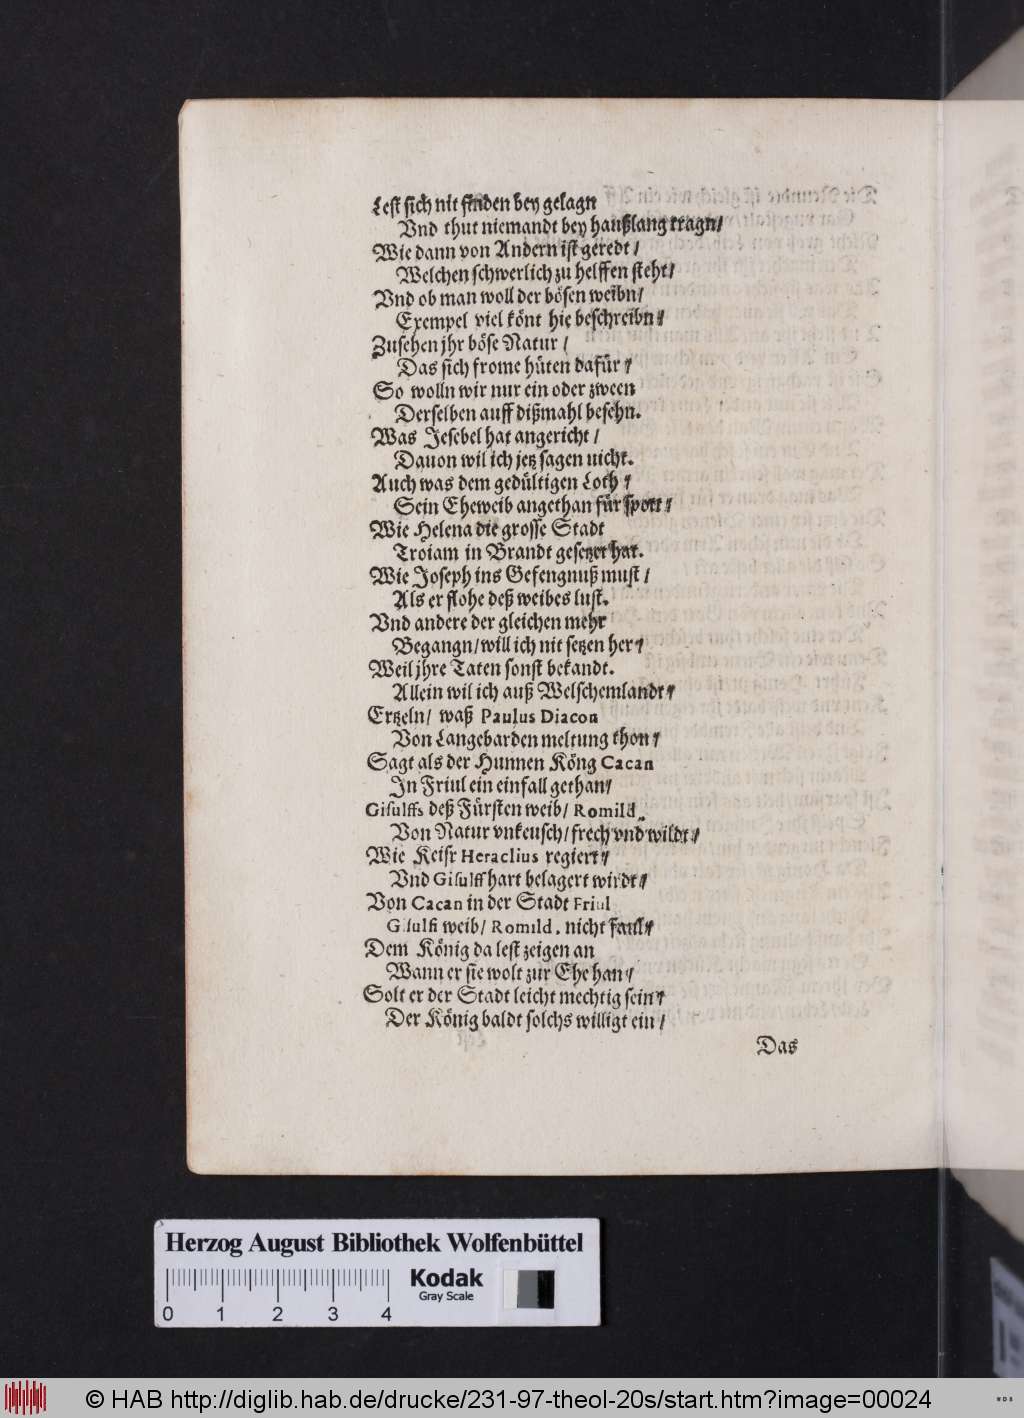 Lest sich nit finden bey gelagn
Vnd thut niemandt bey haußlang tragn/
Wie dann von Andern ist geredt/
Welchen schwerlich zu helffen steht/
Vnd ob man woll der bösen weibn/
Exempel viel könt hie beschreibn/
Zusehen jhr böse Natur/
Das sich frome hüten dafür/
So wolln wir nur ein oder zween
Derselben auff dißmahl besehn.
Was Jesebel hat angericht/
Dauon wil ich jetz sagen nicht.
Auch was dem gedültigen Loth/
Sein Eheweib angethan für spott/
Wie Helena die grosse Stadt
Troiam in Brandt gesetzet hat.
Wie Joseph ins Gefengnuß must/
Als er flohe deß weibes lust.
Vnd andere der gleichen mehr
Begangn/ will ich nit setzen her/
Weil jhre Taten sonst bekandt.
Allein wil ich auß Welschemlandt/
Ertzeln/ waß Paulus Diacon
Von Langebarden meltung thon/
Sagt als der Hunnen Köng Cacan
In Friul ein einfall gethan/
Gisulffs deß Fürsten weib/ Romild,
Von Natur vnkeusch/ frech vnd wildt/
Wie Keisr Heraclius regiert/
Vnd Gisulff hart belagert wirdt/
Von Cacan in der Stadt Friul
Gisulfi weib/ Romild, nicht faul/
Dem König da lest zeigen an
Wann er sie wolt zur Ehe han/
Solt er der Stadt leicht mechtig sein/
Der König baldt solchs willigt ein/
Das
Herzog August Bibliothek Wolfenbüttel
Kodak
Gray Scale
0 1 2 3 4
© HAB http://diglib.hab.de/drucke/231-97-theol-20s/start.htm?image=00024